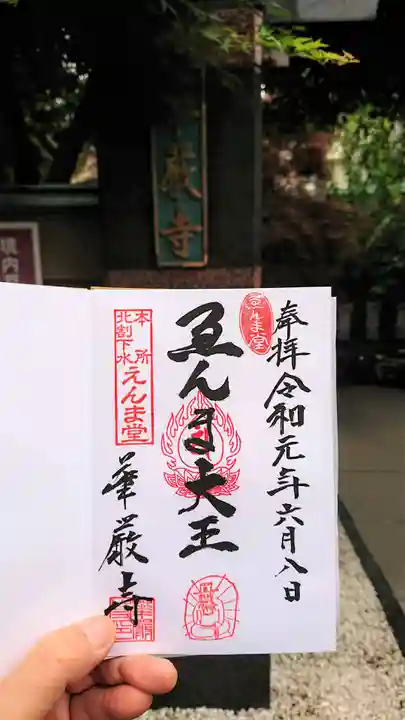 厳寺
境内
奉拝 令和元年六月八日
ゑんま堂
ゑんま大王
本所
北割下水
えんま堂
華厳寺